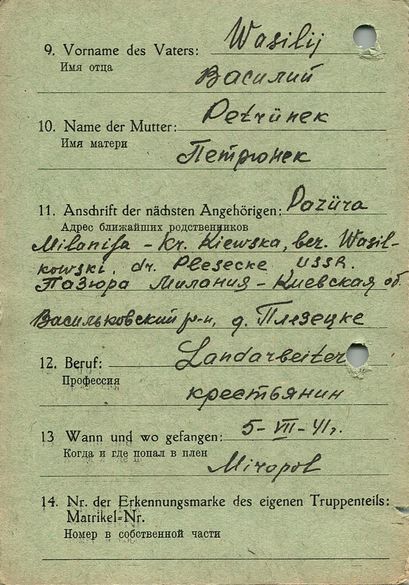 9. Vorname des Vaters: Wasilij
Имя отца
Василий
10. Name der Mutter: Petrünek
Имя матери
Петрюнек
11. Anschrift der nächsten Angehörigen: Pazüra
Адрес ближайших родственников
Milanija - Kr. Kiewska, bez. Wasil-
kowski. dr. Plesecke USSR.
Пазюра Милания - Киевская об.
Васильковский р-н, д. Плезецке
12. Beruf: Landarbeiter
Профессия
крестьянин
13 Wann und wo gefangen: 5-VII-41г.
Когда и где попал в плен
Miropol
14. Nr. der Erkennungsmarke des eigenen Truppenteils:
Matrikel-Nr.
Номер в собственной части